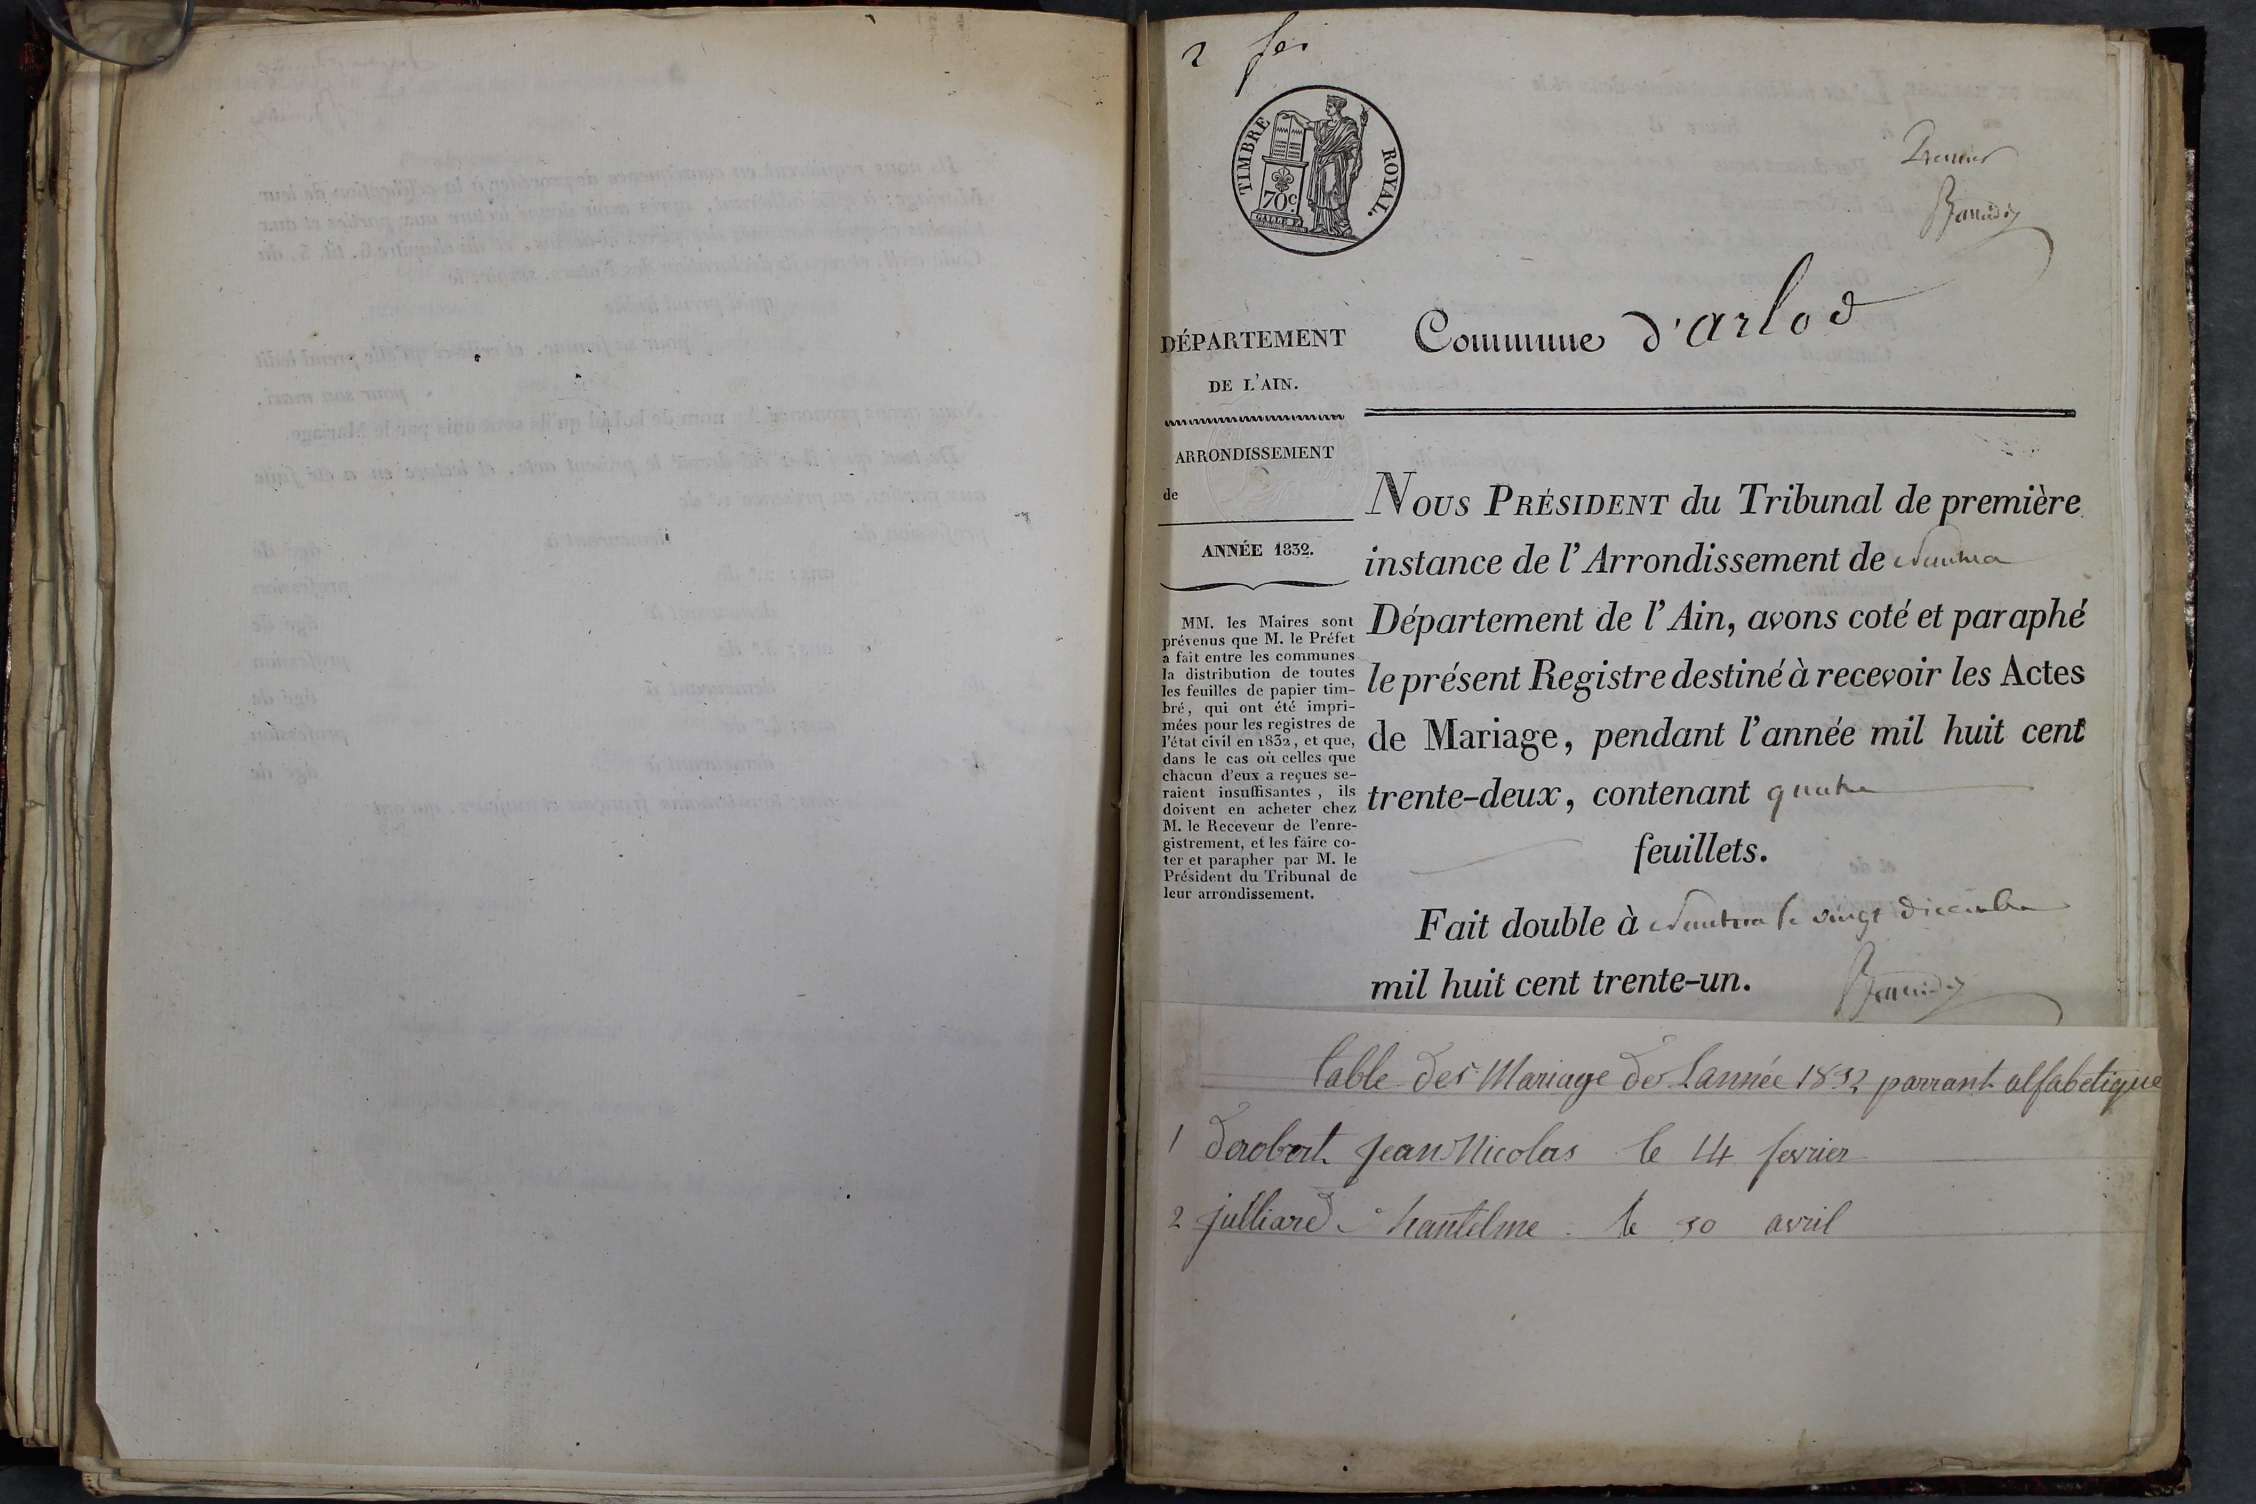 2 f
TIMBRE ROYAL.
70c.
GALLE F.
Premier
Commune d'arlod
DÉPARTEMENT
DE L'AIN.
ARRONDISSEMENT
de
ANNÉE 1832.
MM. les Maires sont
prévenus que M. le Préfet
a fait entre les communes
la distribution de toutes
les feuilles de papier tim-
bré, qui ont été impri-
mées pour les registres de
l'état civil en 1832, et que,
dans le cas où celles que
chacun d'eux a reçues se-
raient insuffisantes, ils
doivent en acheter chez
M. le Receveur de l'enre-
gistrement, et les faire co-
ter et parapher par M. le
Président du Tribunal de
leur arrondissement.
NOUS PRÉSIDENT du Tribunal de première
instance de l'Arrondissement de Nantua
Département de l'Ain, avons coté et paraphé
le présent Registre destiné à recevoir les Actes
de Mariage, pendant l'année mil huit cent
trente-deux, contenant quatre
feuillets.
Fait double à Nantua le vingt Décembre
mil huit cent trente-un.
table des Mariage de Lannée 1832 parrant alfabetique
1 Derobert Jean Nicolas le 14 fevrier
2 julliard hantelme le 30 avril